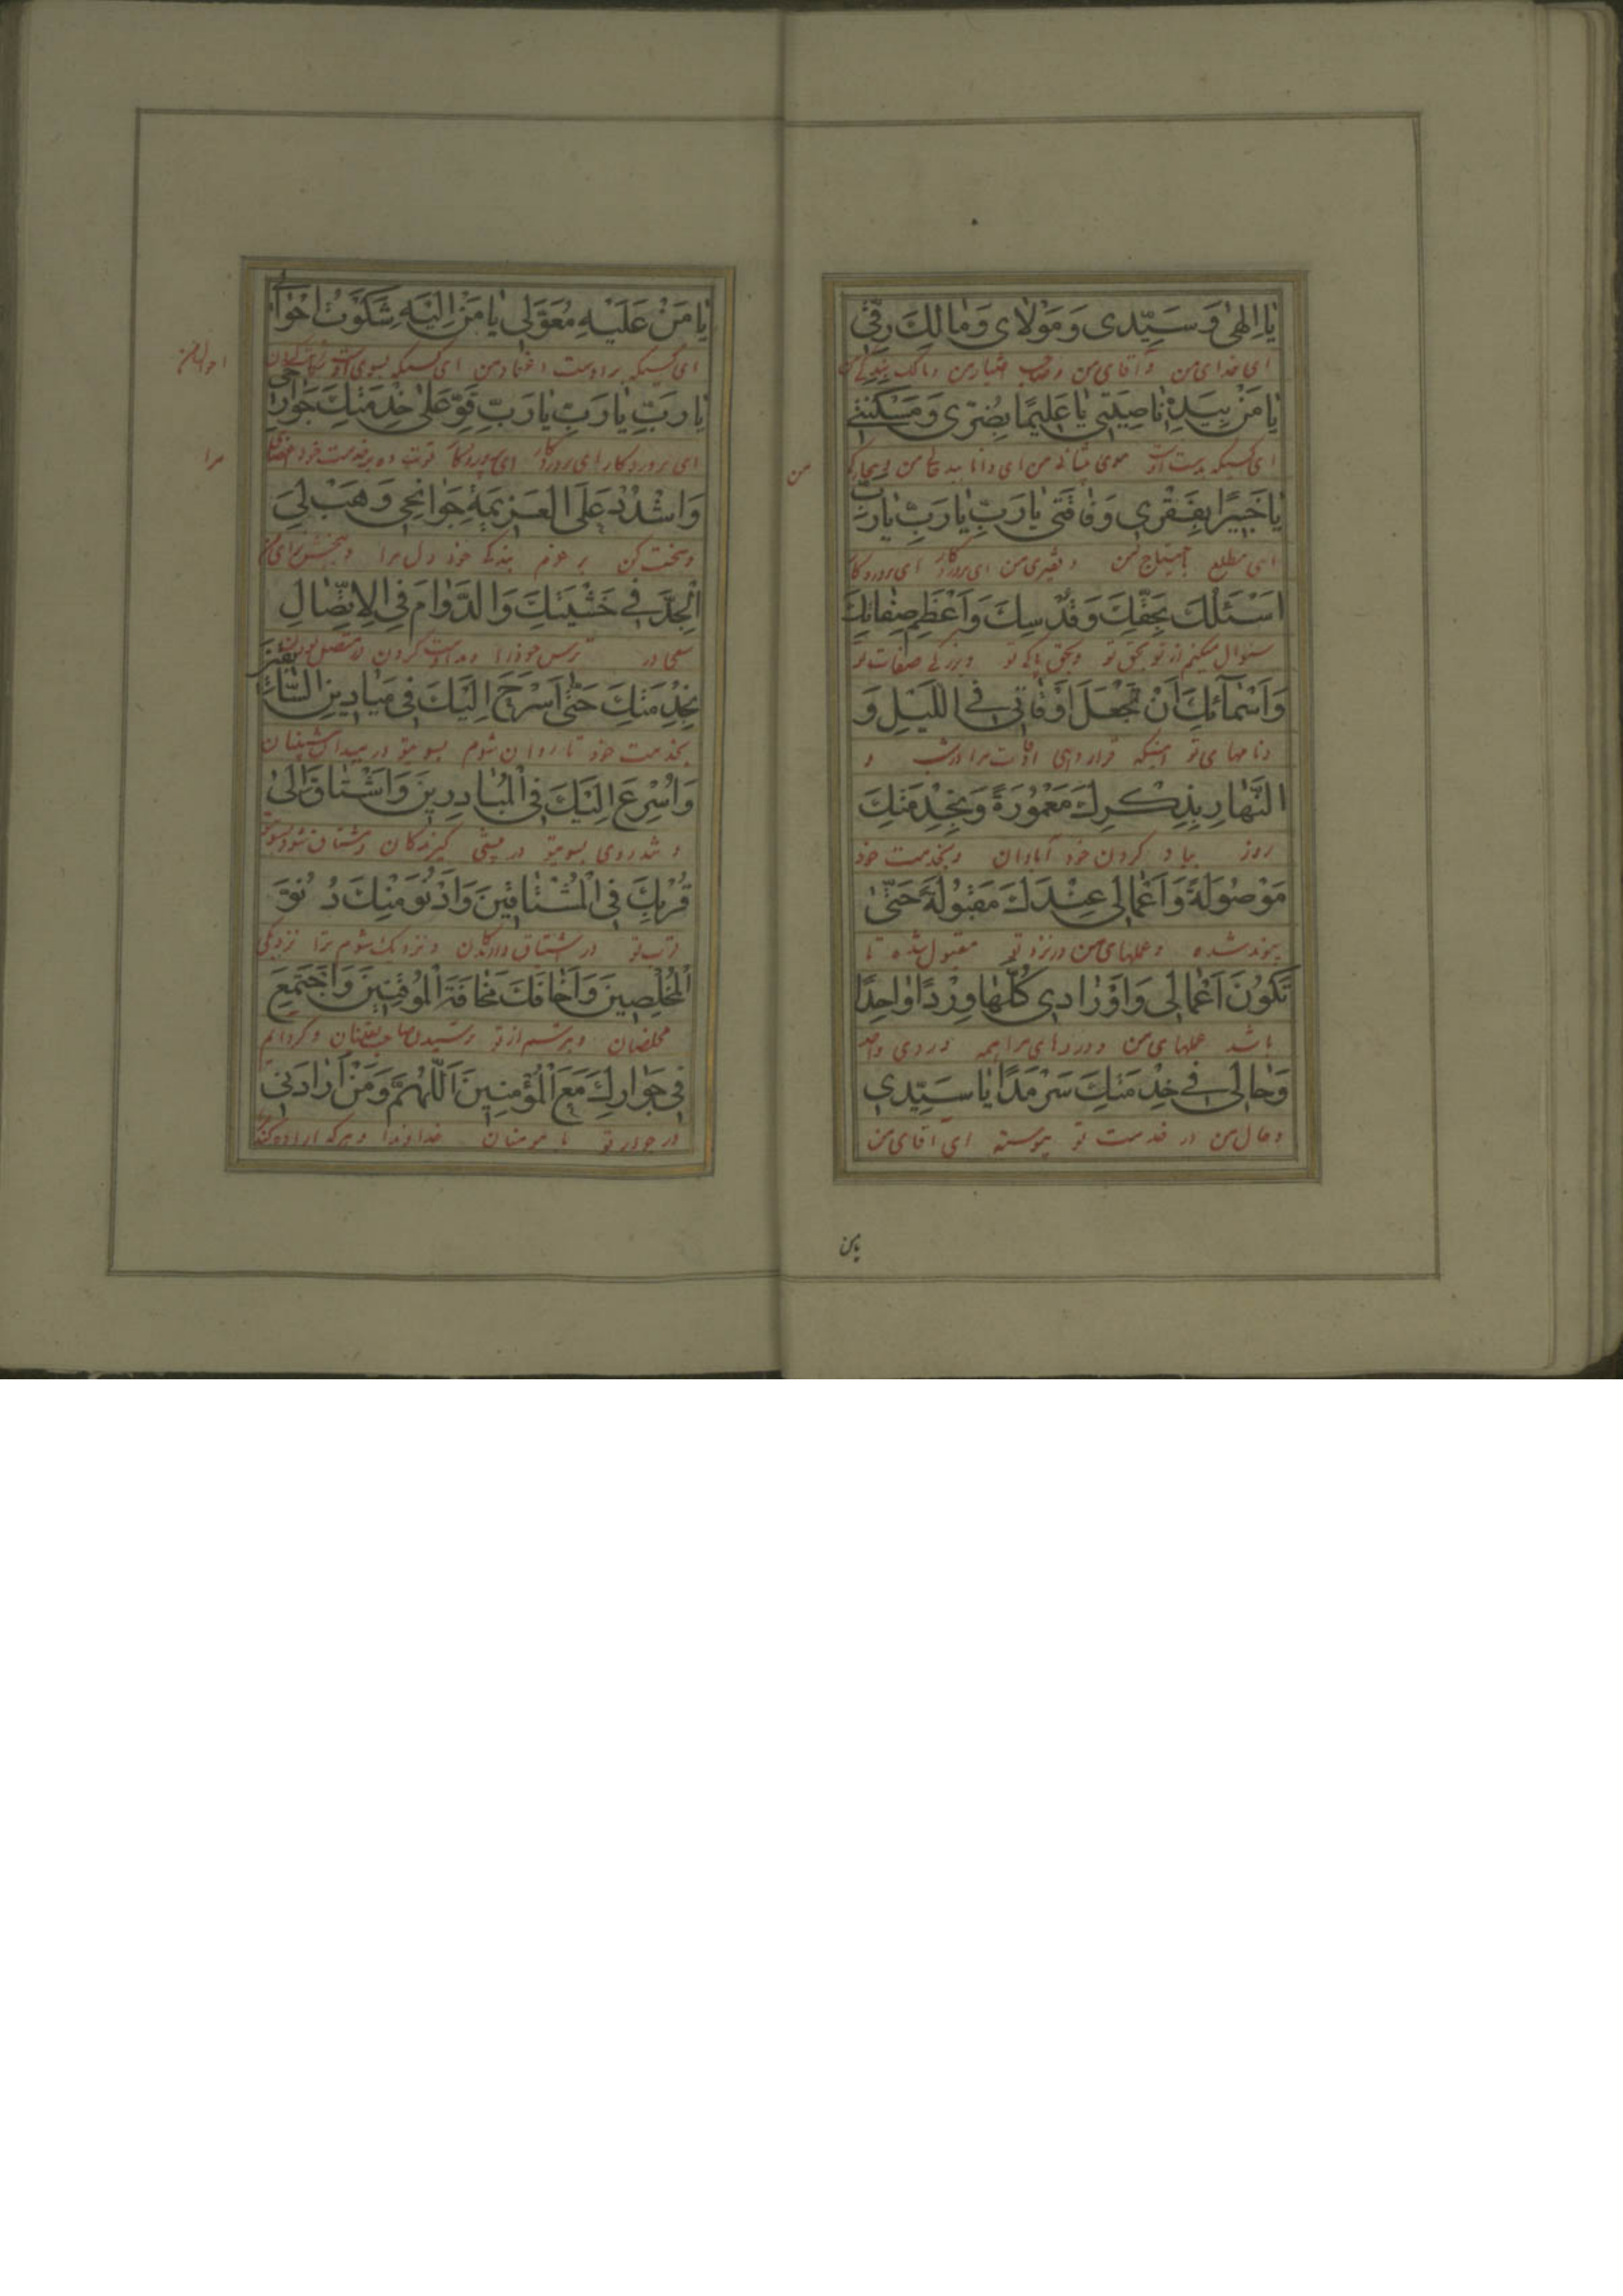 يا اِلهى وَ سَيِّدى وَ مَوْلاى وَ مالِكَ رِقّى
اى خداى من و آقاى من و صاحب اختيار من و مالك بندگى من
يا مَنْ بِيَدِهِ ناصِيَتى يا عَليمًا بِضُرّى وَ مَسْكَنَتى
اى كسيكه بدست اوست موى پيشانى من اى دانا به بدحالى من و بيچارگى
من
يا خَبيرًا بِفَقْرى وَ فاقَتى يا رَبِّ يا رَبِّ يا رَبِّ
اى مطلع باحتياج من و فقيرى من اى پروردگار اى پروردگار
اَسْئَلُكَ بِحَقِّكَ وَ قُدْسِكَ وَ اَعْظَمِ صِفاتِكَ
سئوال ميكنم از تو بحق تو و بحق پاكى تو و بزرگى صفات تو
وَ اَسْمآئِكَ اَنْ تَجْعَلَ اَوْقاتى فِى اللَّيْلِ وَ
و نامهاى تو اينكه قرار دهى اوقات مرا در شب و
النَّهارِ بِذِكْرِكَ مَعْمُورَةً وَ بِخِدْمَتِكَ
روز بياد كردن خود آبادان و بخدمت خود
مَوْصُولَةً وَ اَعْمالى عِنْدَكَ مَقْبُولَةً حَتّى
پيوند شده و عملهاى من در نزد تو مقبول شده تا
تَكُونَ اَعْمالى وَ اَوْرادى كُلُّها وِرْدًا واحِدًا
باشد عملهاى من و وردهاى من همه وردى واحد
وَ حالى فى خِدْمَتِكَ سَرْمَدًا يا سَيِّدى
و حال من در خدمت تو پيوسته اى آقاى من
يامن
يا مَنْ عَلَيْهِ مُعَوَّلى يا مَنْ اِلَيْهِ شَكَوْتُ اَحْوالى
اى كسيكه بر اوست اعتماد من اى كسيكه بسوى اوست
احوال من
يا رَبِّ يا رَبِّ يا رَبِّ قَوِّ عَلى خِدْمَتِكَ جَوارِحى
اى پروردگار اى پروردگار اى پروردگار قوت ده بر خدمت خود اعضاى
مرا
وَ اشْدُدْ عَلَى الْعَزيمَةِ جَوانِحى وَ هَبْ لِىَ
و سخت كن بر عزم بندگى خود دل مرا و ببخش براى من
الْجِدَّ فى خَشْيَتِكَ وَ الدَّوامَ فِى الْاِتِّصالِ
سعى در ترس خود را و مداومت كردن در متصل بودن
بِخِدْمَتِكَ حَتّى اَسْرَحَ اِلَيْكَ فى مَيادينِ السّابِقينَ
بخدمت خود تا روان شوم بسوى تو در ميدان پيشينيان
وَ اُسْرِعَ اِلَيْكَ فِى الْمُبادِرينَ وَ اَشْتاقَ اِلى
و تند روى بسوى تو در پيشى گيرندگان و مشتاق شوم بسوى
قُرْبِكَ فِى الْمُشْتاقينَ وَ اَدْنُوَ مِنْكَ دُنُوَّ
قرب تو در اشتياق دارندگان و نزديك شوم ترا نزديكى
الْمُخْلِصينَ وَ اَخافَكَ مَخافَةَ الْمُوقِنينَ وَ اَجْتَمِعَ
مخلصان و بترسم از تو ترسيدن صاحب يقينان و گرد آيم
فى جَوارِكَ مَعَ الْمُؤْمِنينَ اَللّهُمَّ وَ مَنْ اَرادَنى
در جوار تو با مومنان خداوندا و هر كه اراده كند